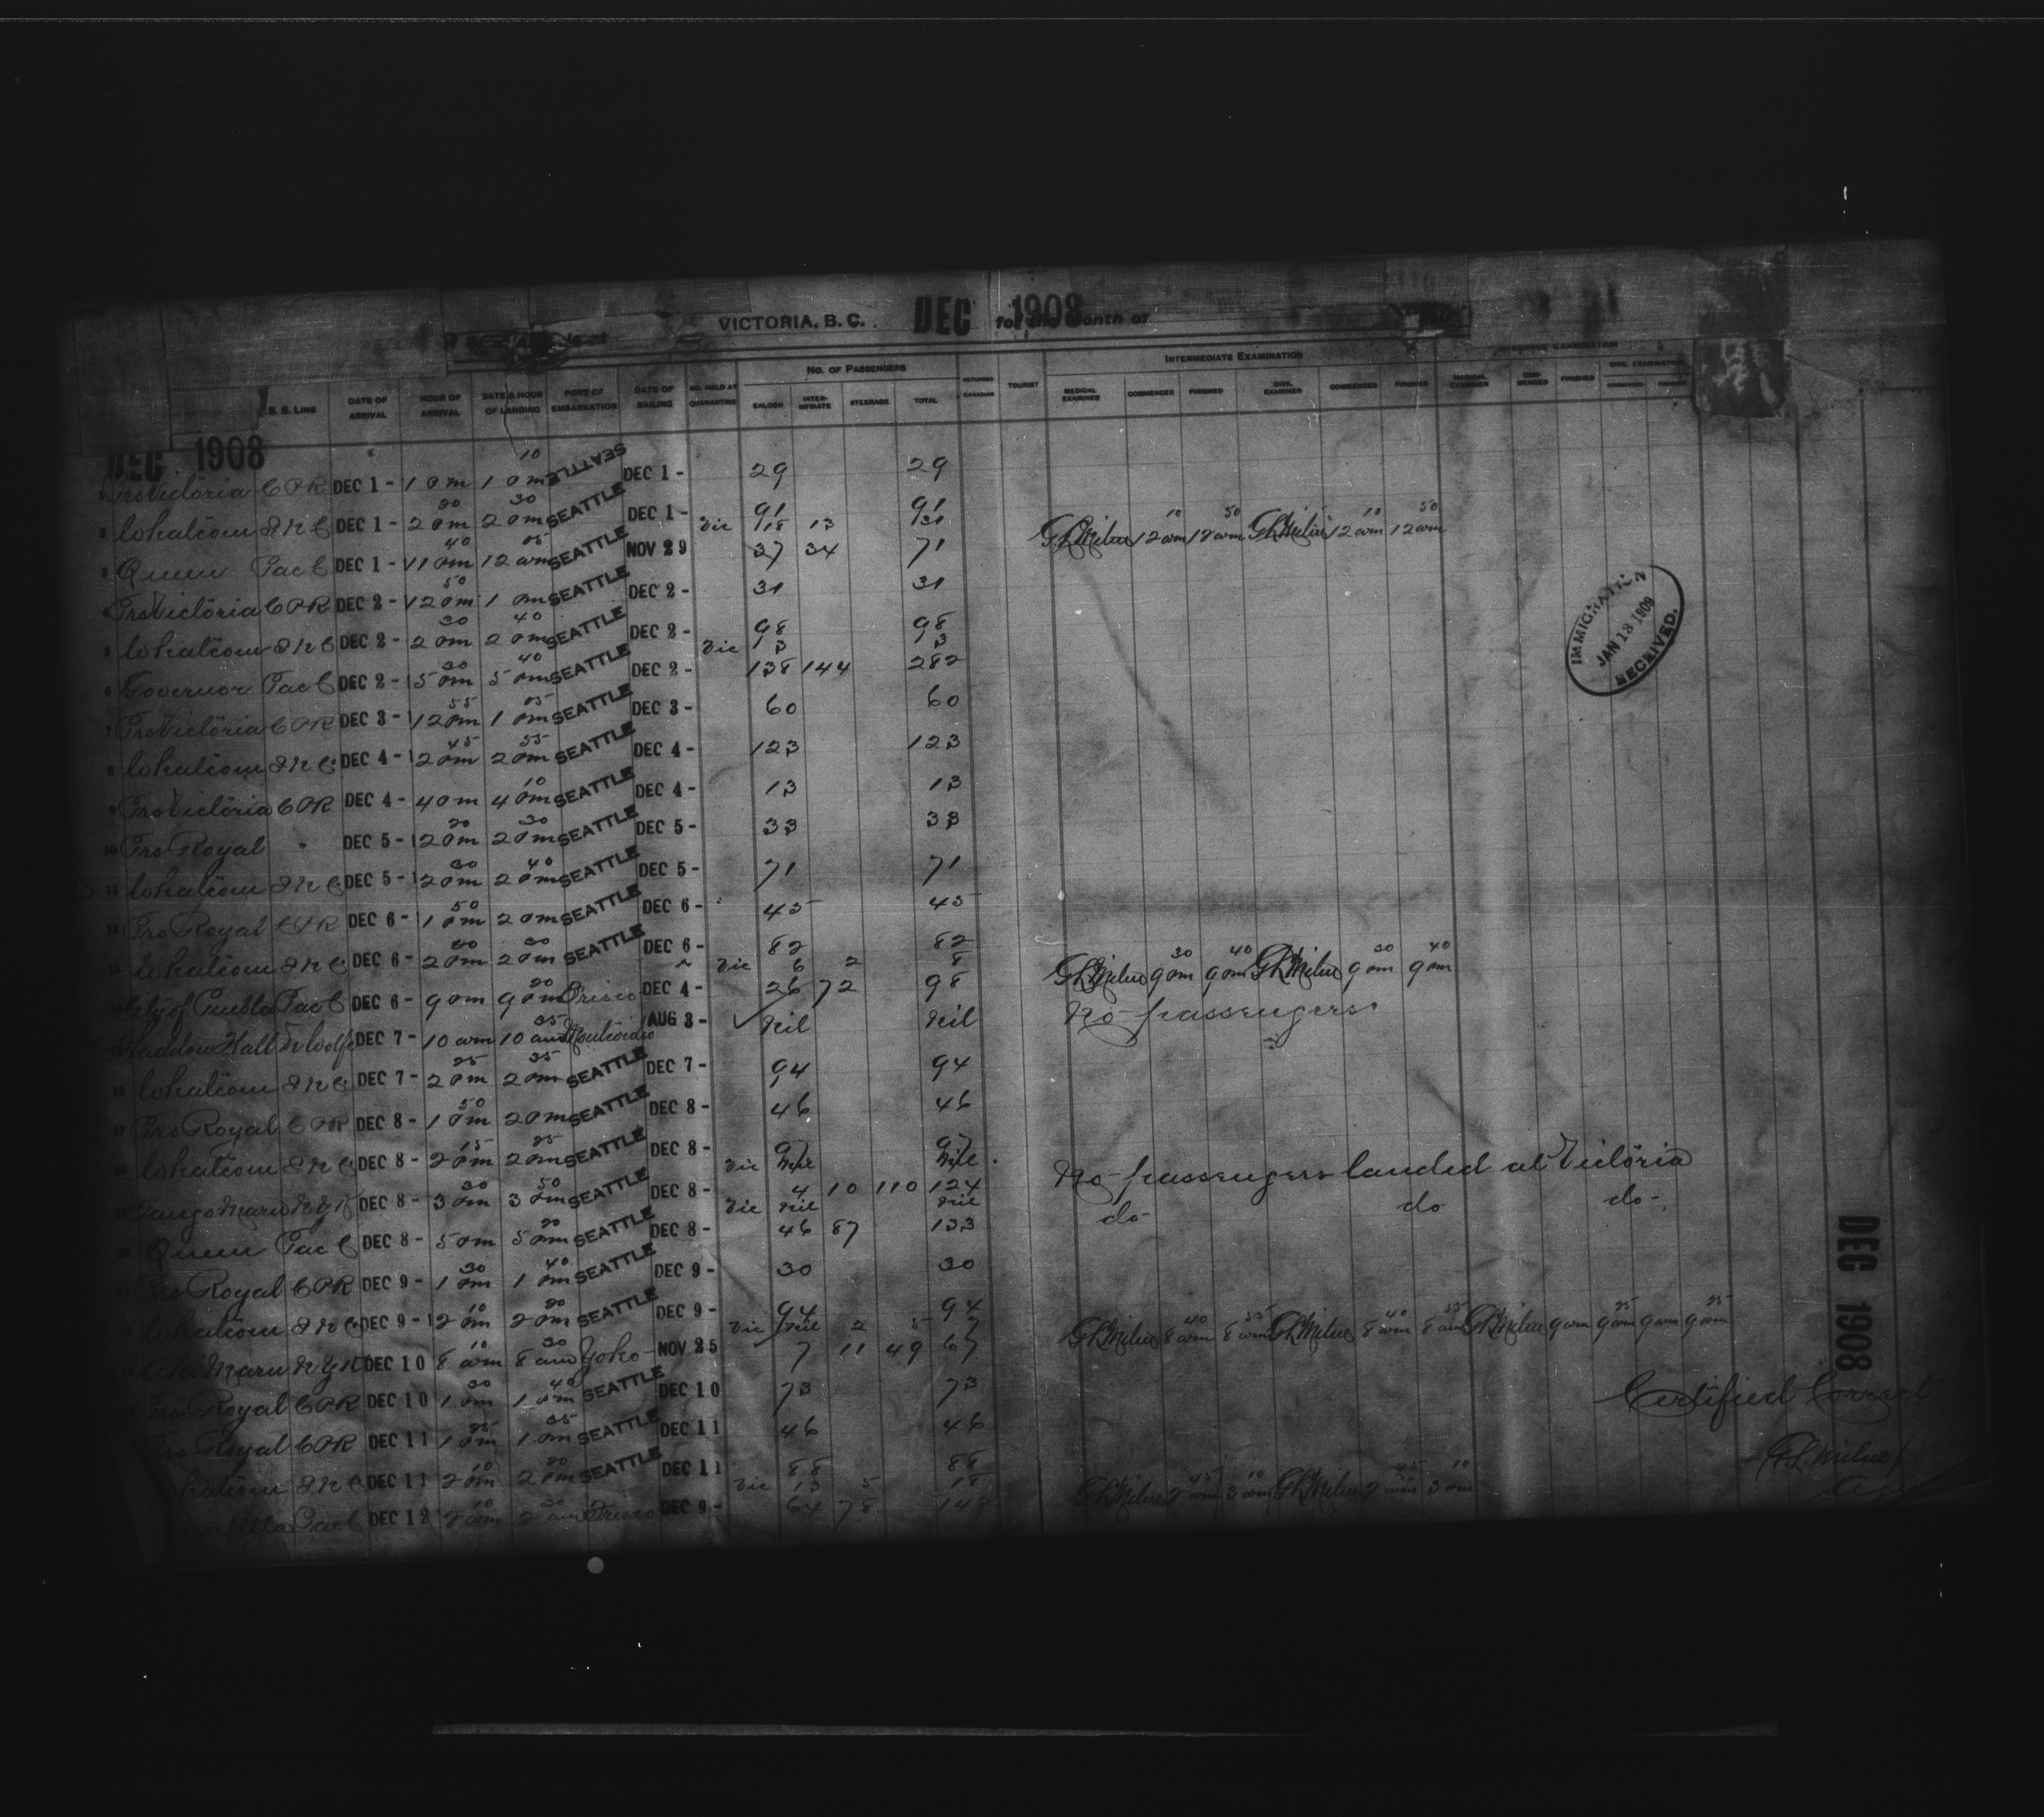 VICTORIA, B. C. DEC 1908 for the Month of
NO. OF PASSENGERS INTERMEDIATE EXAMINATION
S. S. LINE DATE OF ARRIVAL HOUR OF ARRIVAL DATE & HOUR OF LANDING PORT OF EMBARKATION DATE OF SAILING NO. HELD AT QUARANTINE SALOON INTER-MEDIATE STEERAGE TOTAL RETURNED CANADIAN TOURIST MEDICAL EXAMINED COMMENCED FINISHED CIVIL EXAMINER COMMENCED FINISHED MEDICAL EXAMINER COM-MENCED FINISHED CIVIL EXAMINATION
DEC 1908
1 Prs Victoria C P R DEC 1 - 1 pm 1 10 pm SEATTLE DEC 1 - 29 29
2 Whatcom I N C DEC 1 - 2 20 pm 2 30 pm SEATTLE DEC 1 - 91 91
Vic 18 13 31
3 Queen Pac C DEC 1 - 11 40 pm 12 05 am SEATTLE NOV 29 37 34 71 G L Milne 12 10 am 12 50 am G L Milne 12 10 am 12 50 am
4 Prs Victoria C P R DEC 2 - 12 50 pm 1 pm SEATTLE DEC 2 - 31 31
5 Whatcom I N C DEC 2 - 2 30 pm 2 40 pm SEATTLE DEC 2 - 98 98
Vic 3 3
6 Governor Pac C DEC 2 - 5 30 pm 5 40 pm SEATTLE DEC 2 - 138 144 282
7 Prs Victoria C P R DEC 3 - 12 55 pm 1 05 pm SEATTLE DEC 3 - 60 60
8 Whatcom I N C DEC 4 - 2 45 pm 2 55 pm SEATTLE DEC 4 - 123 123
9 Prs Victoria C P R DEC 4 - 4 pm 4 10 pm SEATTLE DEC 4 - 13 13
10 Prs Royal " DEC 5 - 2 20 pm 2 30 pm SEATTLE DEC 5 - 33 33
11 Whatcom I N C DEC 5 - 2 30 pm 2 40 pm SEATTLE DEC 5 - 71 71
12 Prs Royal C P R DEC 6 - 1 50 pm 2 pm SEATTLE DEC 6 - 45 45
13 Whatcom I N C DEC 6 - 2 pm 2 pm SEATTLE DEC 6 - 82 82
Vic 6 2 8
City of Puebla Pac C DEC 6 - 9 pm 9 20 pm Frisco DEC 4 - 26 72 98 G L Milne 9 30 pm 9 40 pm G L Milne 9 30 pm 9 40 pm
Haddon Hall DEC 7 - 10 am 10 35 am AUG 3 - Nil Nil No passengers
16 Whatcom I N C DEC 7 - 2 25 pm 2 35 pm SEATTLE DEC 7 - 94 94
17 Prs Royal C P R DEC 8 - 1 50 pm 2 pm SEATTLE DEC 8 - 46 46
18 Whatcom I N C DEC 8 - 2 15 pm 2 25 pm SEATTLE DEC 8 - 97 97
Vic Nil Nil No passengers landed at Victoria
Tango Maru N Y K DEC 8 - 3 30 pm 3 50 pm SEATTLE DEC 8 - 4 10 110 124
Vic Nil Nil do do do
20 Queen Pac C DEC 8 - 5 pm 5 20 pm SEATTLE DEC 8 - 46 87 133
Prs Royal C P R DEC 9 - 1 30 pm 1 40 pm SEATTLE DEC 9 - 30 30
22 Whatcom I N C DEC 9 - 2 10 pm 2 20 pm SEATTLE DEC 9 - 94 94
Vic Nil 2 5
Aki Maru N Y K DEC 10 8 10 am 8 30 am Yoko NOV 25 7 11 49 67 G L Milne 8 40 am 8 55 am G L Milne 8 40 am 8 55 am G L Milne 9 am 9 25 am 9 am 9 25 am
Prs Royal C P R DEC 10 1 30 pm 1 40 pm SEATTLE DEC 10 73 73
Prs Royal C P R DEC 11 1 25 pm 1 35 pm SEATTLE DEC 11 46 46
Whatcom I N C DEC 11 2 10 pm 2 20 pm SEATTLE DEC 11 88 88
Vic 13 5 18
Pac C DEC 12 2 10 am 2 30 am Frisco DEC 9 - 64 78 142 G L Milne 2 45 am 3 10 am G L Milne 2 45 am 3 10 am
IMMIGRATION
JAN 13 1909
RECEIVED.
DEC 1908
Certified Correct
G. L. Milne